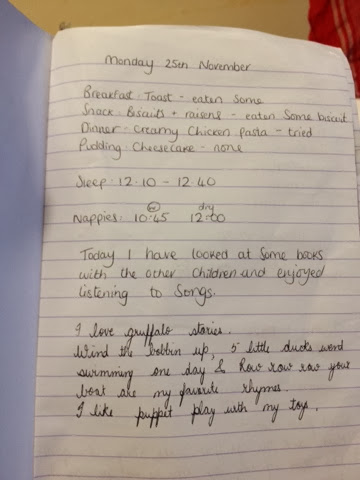 Monday 25th November
Breakfast: Toast - eaten some
Snack: Biscuits + raisens - eaten some biscuit
Dinner: creamy chicken pasta - tried
Pudding: Cheesecake - none
Sleep: 12.10 - 12.40
dry
Nappies: 10.45 12.00
Today I have looked at some books
with the other children and enjoyed
listening to songs.
I love gruffalo stories.
Wind the bobbin up, 5 little ducks
swimming one day & Row row row your
boat are my favorite rhymes.
I like puppet play with my toys.